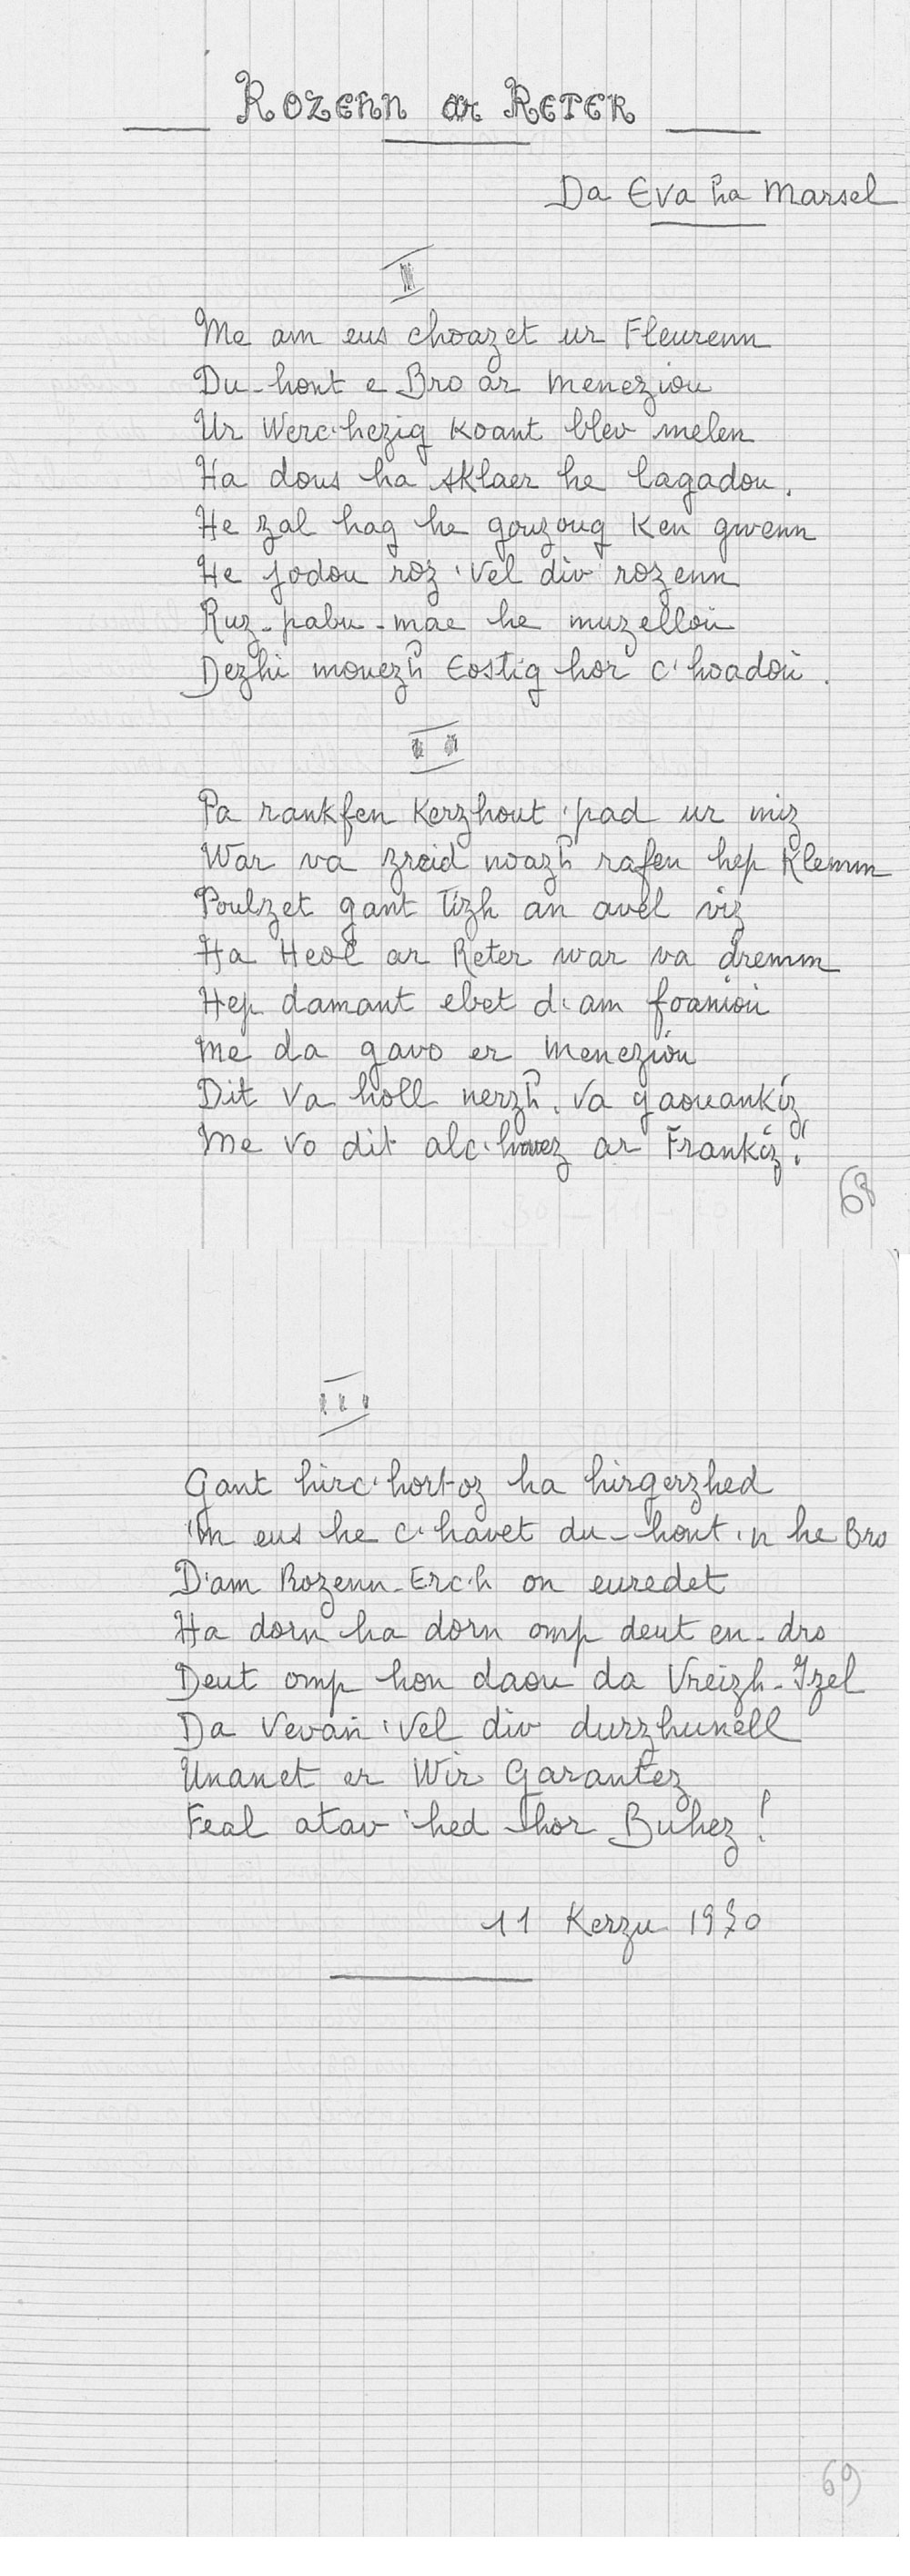 Rozenn ar Reter
Da Eva ha Marsel
I
Me am eus choazet ur Fleurenn
Du-hont e Bro ar Menezioù
Ur Werc'hezig Koant blev melen
Ha dous ha sklaer he lagadou.
He zal hag he gouzoug Ken gwenn
He jodou roz 'Vel div rozenn
Ruz-pabu-mae he muzelloù
Dezhi mouezh Eostig hor c'hoadoù.
II
Pa rankfen Kerzhout 'pad ur miz
War va zreid noazh rafen hep Klemm
Poulzet gant Tizh an avel viz
Ha Heol ar Reter war va dremm
Hep damant ebet d'am foanioù
Me da gavo er Menezioù
Dit Va holl nerzh, Va yaouankiz
Me vo dit alc'houez ar Frankiz!
68
III
Gant hirc'hortoz ha hirgerzhed
'm eus he c'havet du-hont 'n he Bro
D'am Rozenn-Erc'h on euredet
Ha dorn ha dorn omp deut en-dro
Deut omp hon daou da Vreizh-Izel
Da Vevañ 'Vel div durzhunell
Unanet er Wir Garantez
Feal atav 'hed hor Buhez!
11 Kerzu 1970
69